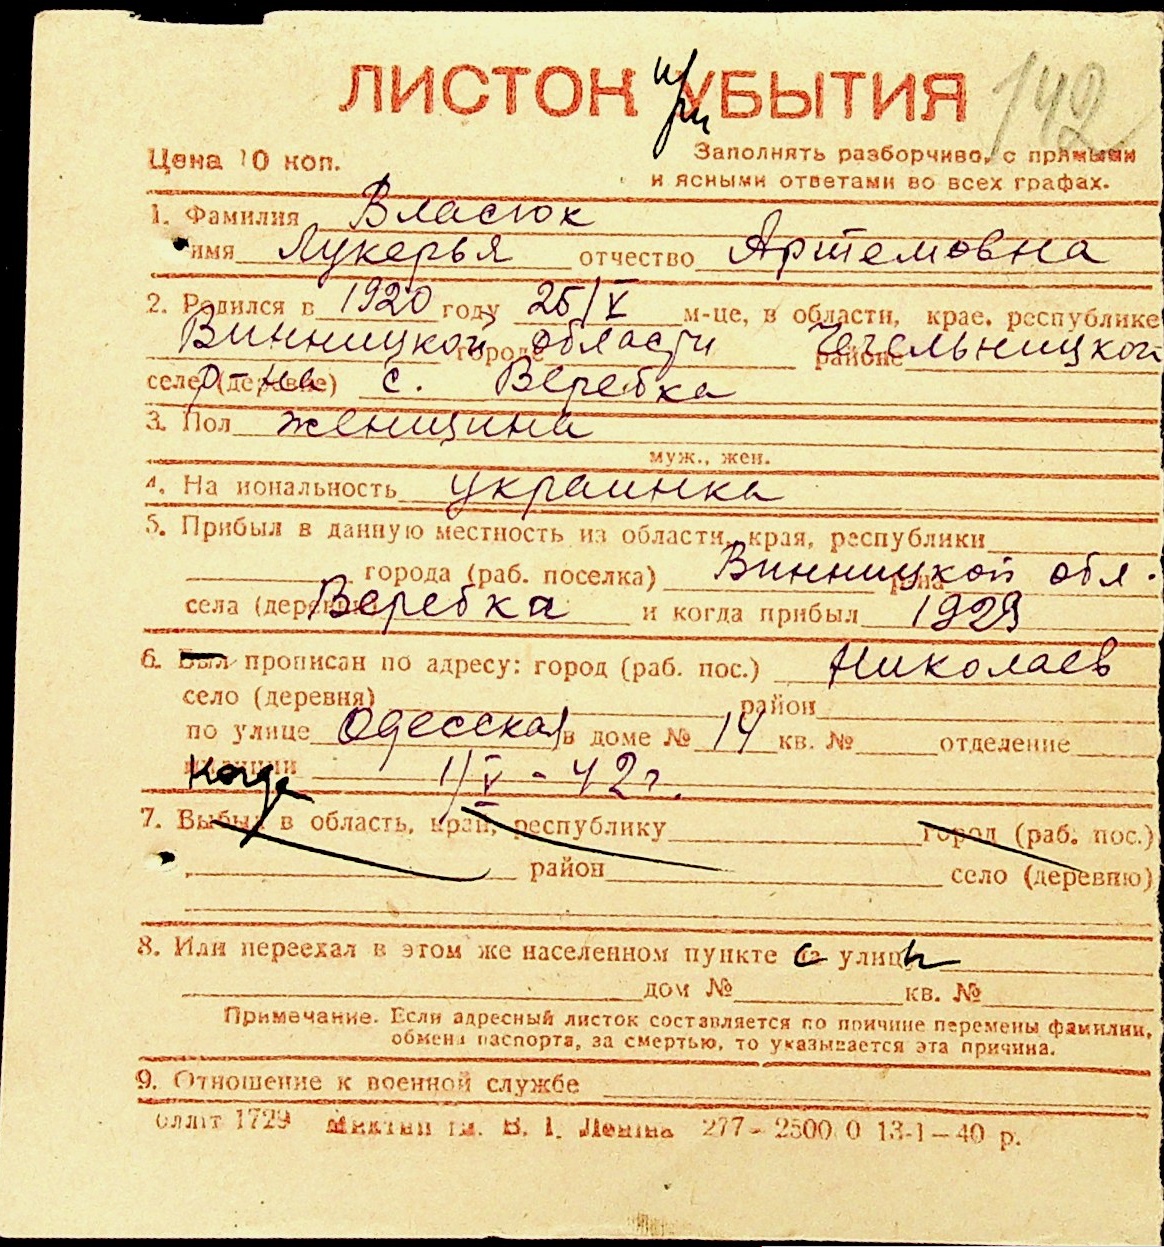 ЛИСТОК УБЫТИЯ
при
142
Цена 10 коп.
Заполнять разборчиво, с прямыми
и ясными ответами во всех графах.
1. Фамилия Власюк
имя Лукерья отчество Артемовна
2. Родился в 1920 году 25/V м-це, в области, крае, республике
Винницкой области Чечельницкой
городе районе
селе (деревне) р-на с. Веребка
3. Пол женщина
муж., жен.
4. На иональность украинка
5. Прибыл в данную местность из области, края, республики
города (раб. поселка) Винницкой обл.
села (деревни) Веребка и когда прибыл 1929
6. Был прописан по адресу: город (раб. пос.) Николаев
село (деревня) район
по улице Одесская в доме № 14 кв. № отделение
милиции когда 1/V - 42 г.
7. Выбыл в область, край, республику город (раб. пос.)
район село (деревню)
8. Или переехал в этом же населенном пункте с улицы
дом № кв. №
Примечание. Если адресный листок составляется по причине перемены фамилии,
обмена паспорта, за смертью, то указывается эта причина.
9. Отношение к военной службе
1729 В. І. Леніна 277–2500 0 13-1–40 р.